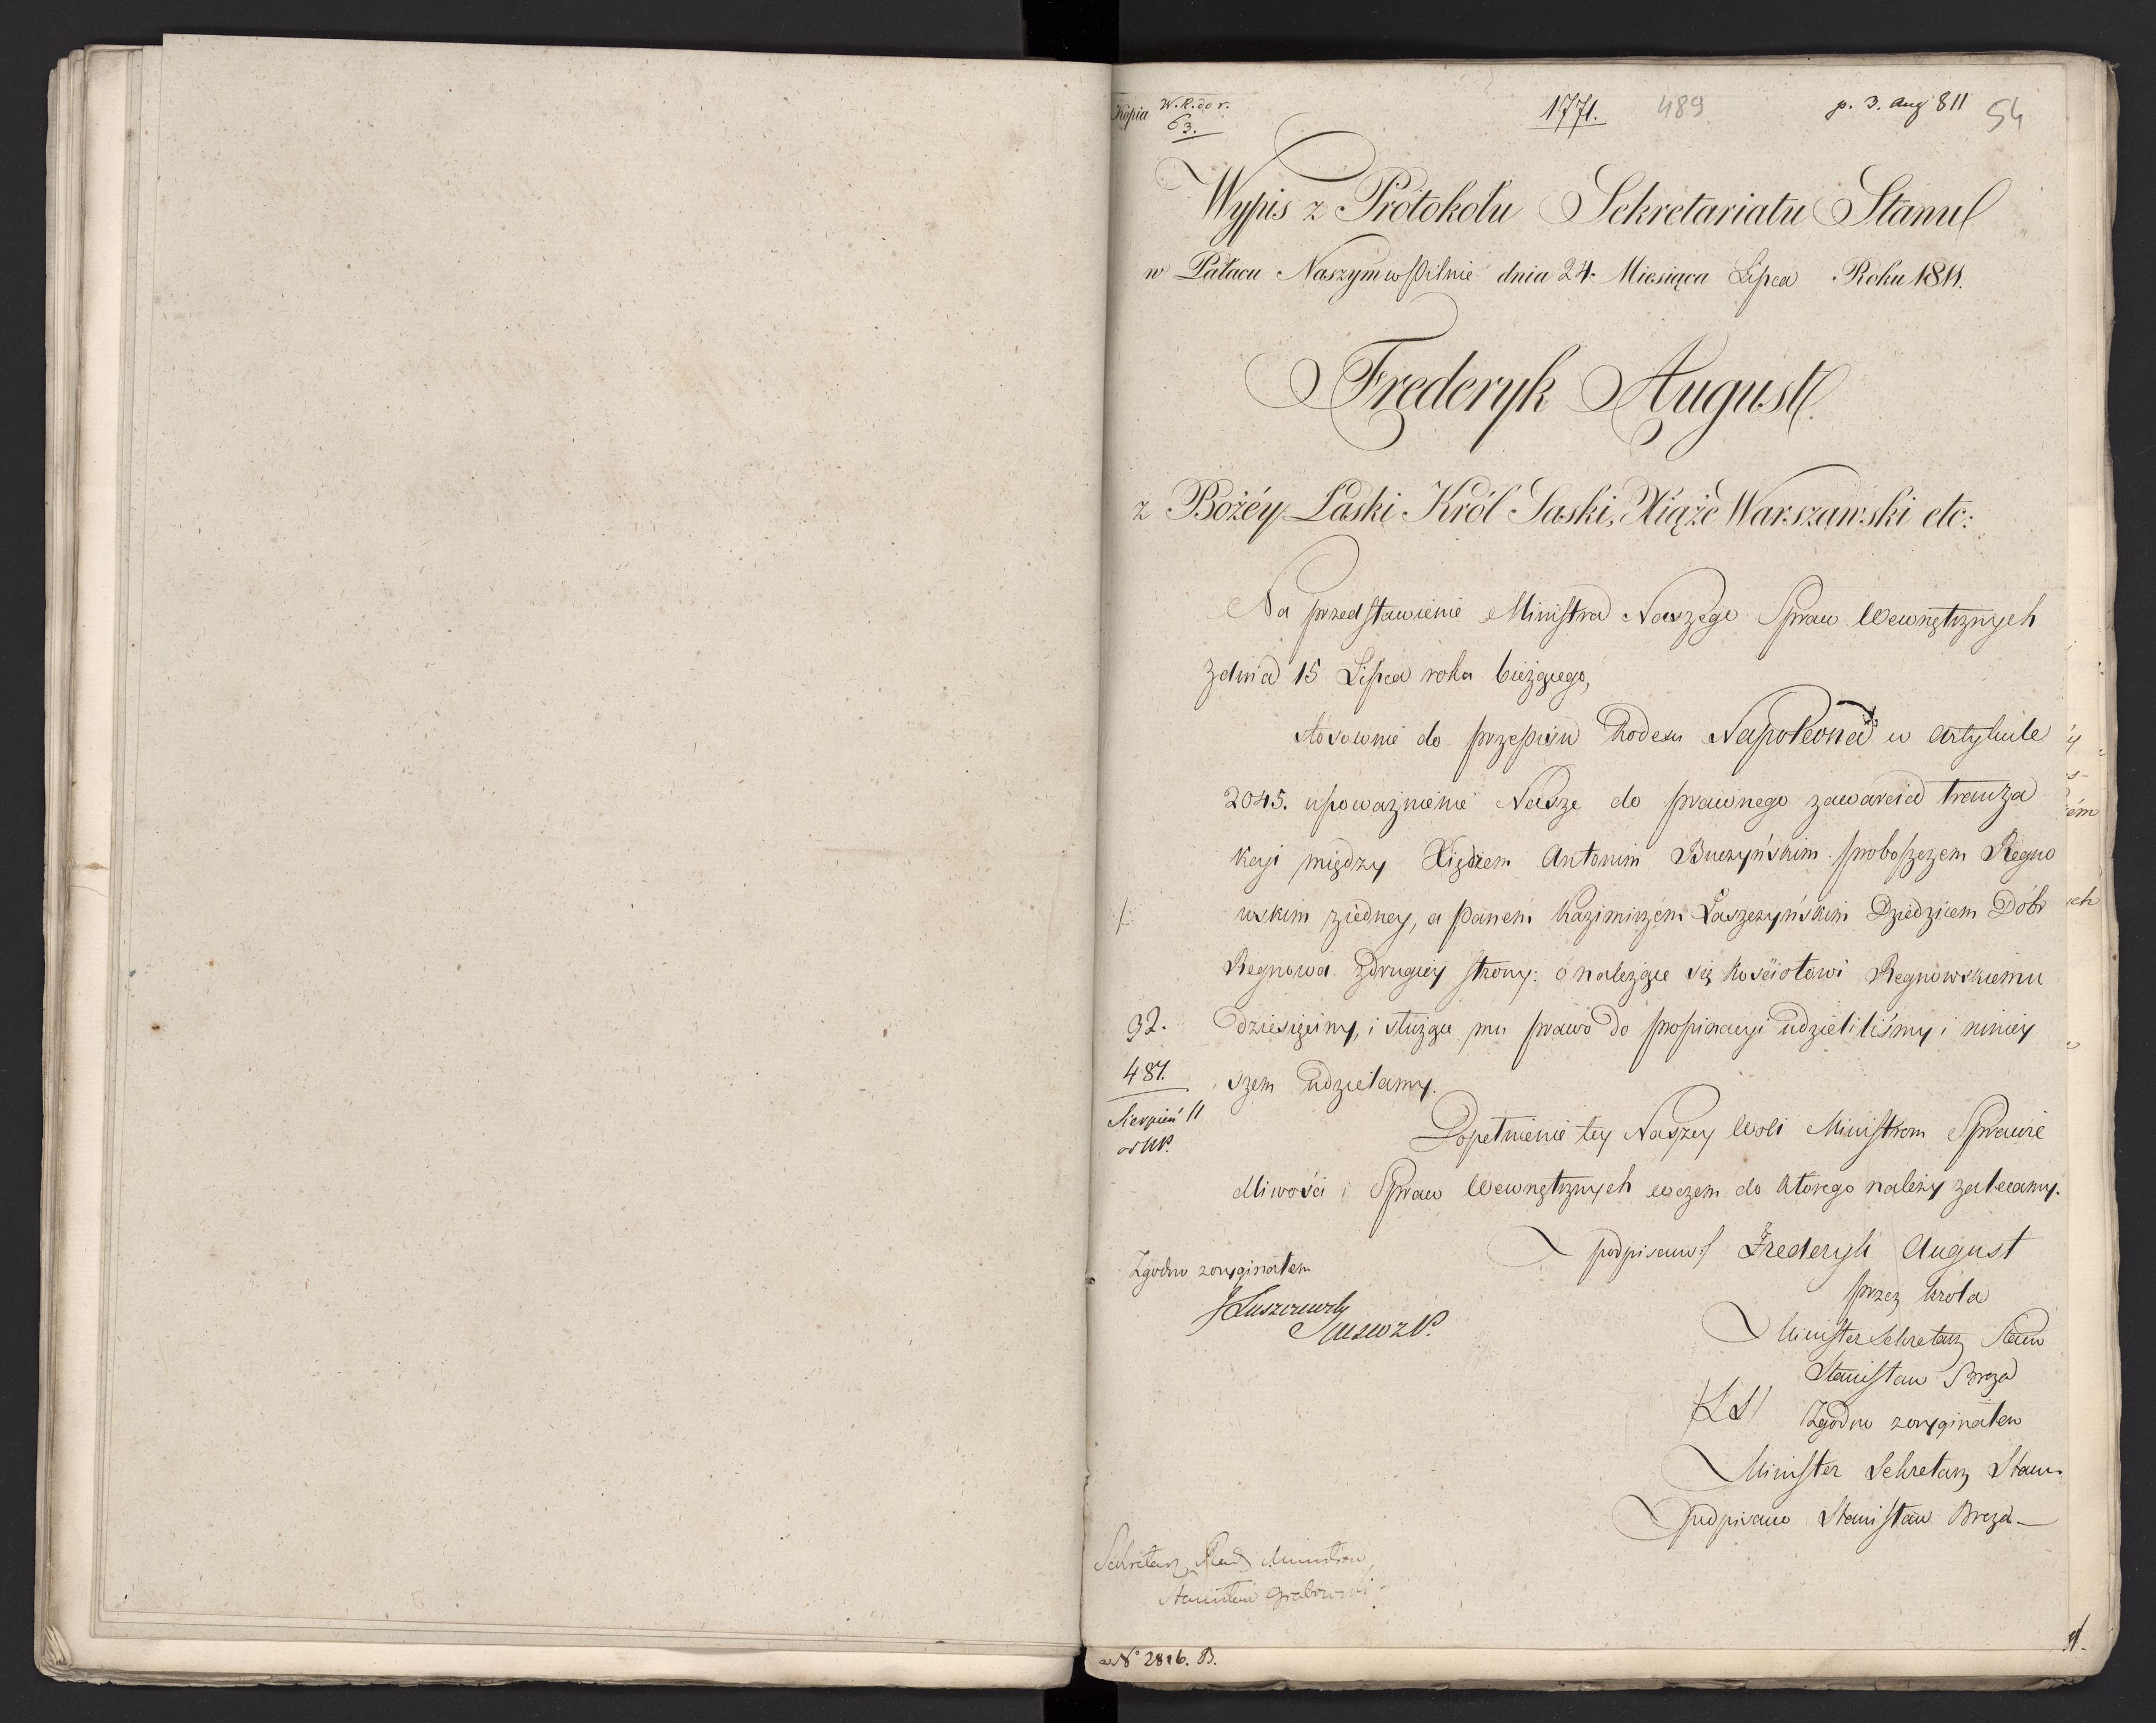 Kopia W.R. do r.
63.
1771.
489
p. 3. Aug 811
54
Wypis z Protokołu Sekretariatu Stanu
w Pałacu Naszym w Pilnie dnia 24. Miesiąca Lipca Roku 1811.
Frederyk August
z Bożéy Łaski Król Saski, Xiąże Warszawski etc:
Na przedstawienie Ministra Naszego Spraw Wewnętrznych
z dnia 15 Lipca roku bieżącego,
stosownie do przepisu Kodexu Napoleona w Artykule
2045. upoważnienie Nasze do prawnego zawarcia tranza
kcyi między Xiędzem Antonim Buczyńskim proboszczem Regno
wskim z iedney, a Panem Kazimirzem Łaszczyńskim Dziedzicem Dóbr
Regnowa z drugiey strony: o należące się Kościołowi Regnowskiemu
dziesięciny, i służące mu prawo do propinacyi udzieliliśmy i niniey
szem udzielamy.
32.
487.
Sierpień 11
Dopełnienie tey Naszey Woli Ministrom Sprawie
dliwości i Spraw Wewnętrznych w czem do którego należy zalecamy.
podpisano:/ Frederyk August
przez Króla
Minister Sekretarz Stanu
Stanisław Breza
/LS/ Zgodno z oryginałem
Minister Sekretarz Stanu
podpisano Stanisław Breza
Zgodno z oryginałem
JŁuszczewski
Sekretarz Rady Ministrów
Stanisław Grabowski
No 2816. B.